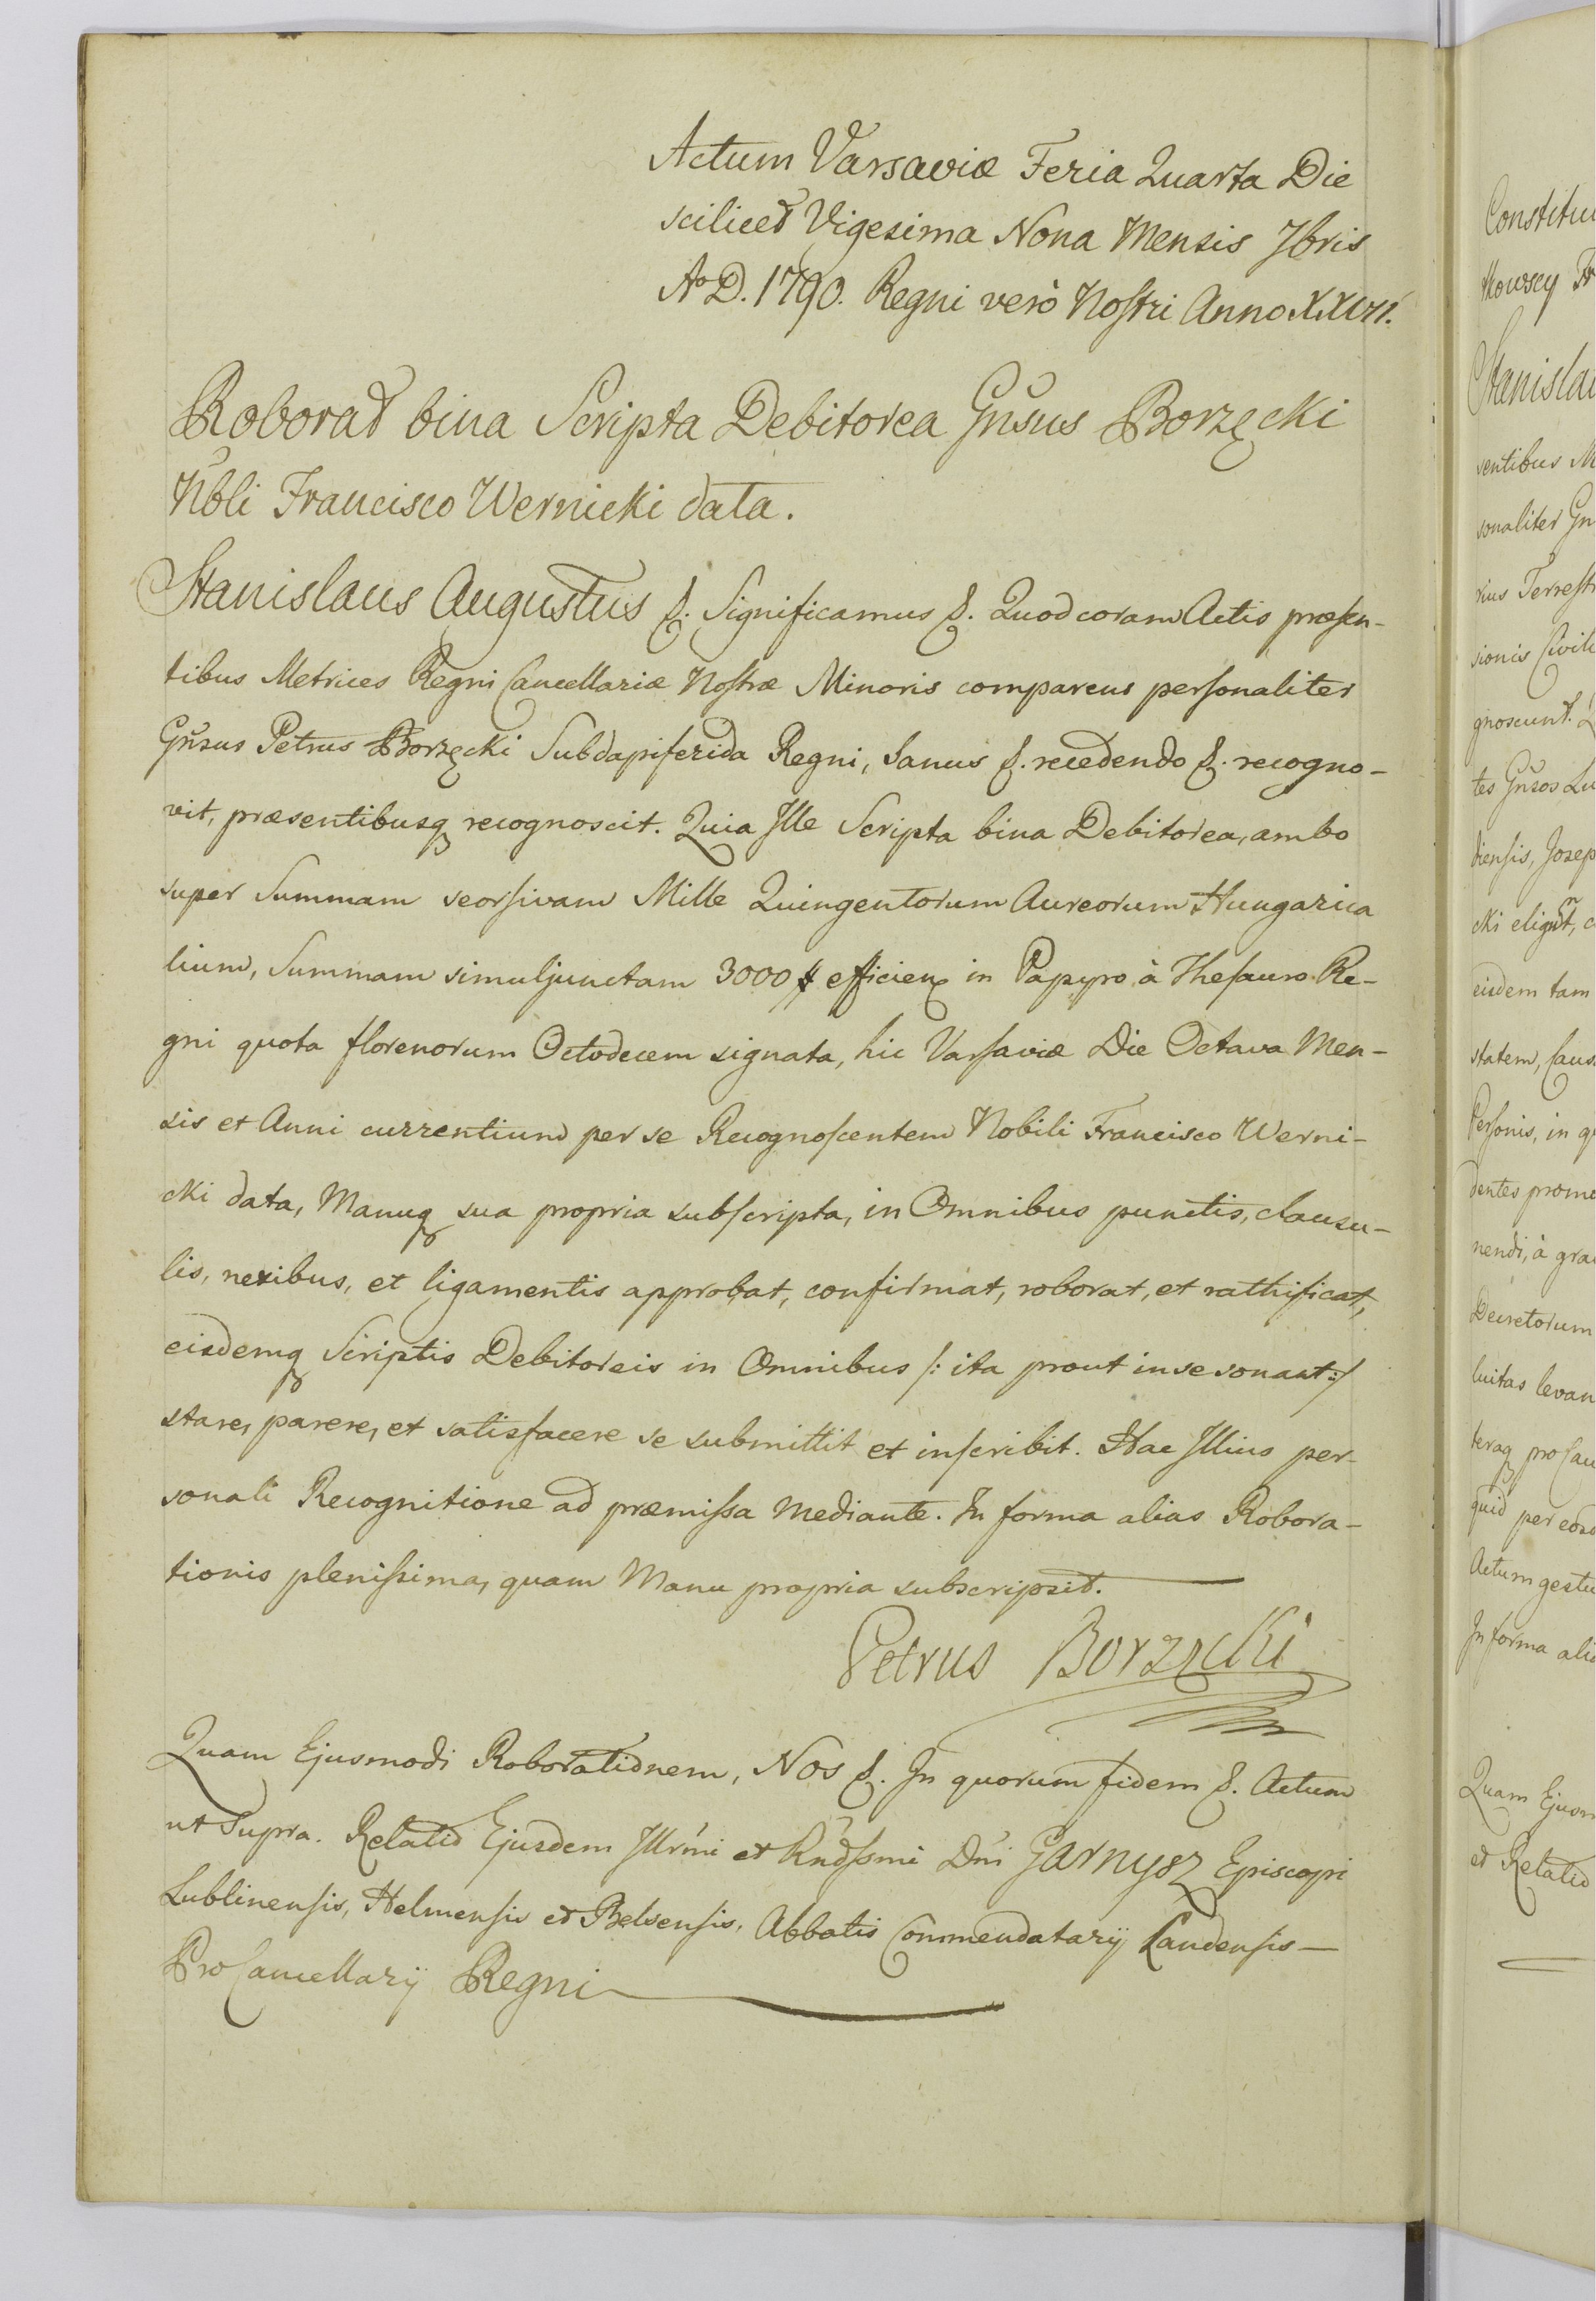 Actum Varsaviæ Feria Quarta Die
scilicet Vigesima Nona Mensis 7bris
Aº D. 1790. Regni verò Nostri Anno XXVII.
Roborat bina Scripta Debitorea Gnsus Borzęcki
Nbli Francisco Wernicki data.
Stanislaus Augustus &. Significamus &. Quod coram Actis præsen-
tibus Metrices Regni Cancellariæ Nostræ Minoris comparens personaliter
Gnsus Petrus Borzęcki Subdapiferida Regni, Sanus &. recedendo &. recogno-
vit, præsentibusq recognoscit. Quia Ille Scripta bina Debitorea, ambo
super Summam seorsivam Mille Quingentorum Aureorum Hungarica
lium, Summam simuljunctam 3000 # efficien in Papyro à Thesauro Re-
gni quota florenorum Octodecem signata, hic Varsaviæ Die Octava Men-
sis et Anni currentium per se Recognoscentem Nobili Francisco Werni-
cki data, Manuq sua propria subscripta, in Omnibus punctis, clausu-
lis, nexibus, et ligamentis approbat, confirmat, roborat, et rathificat,
eisdemq Scriptis Debitoreis in Omnibus /: ita prout in se sonant :/
stare, parere, et satisfacere se submittit et inscribit. Hac Illius per-
sonali Recognitione ad præmissa mediante. In forma alias Robora-
tionis plenissima, quam Manu propria subscripsit.
Petrus Borzęcki
Quam Ejusmodi Roborationem, Nos &. In quorum fidem &. Actum
ut Supra. Relatio Ejusdem Illrmi et Rndssmi Dni Garnysz Episcopi
Lublinensis, Helmensis et Belsensis, Abbatis Commendatarij Landensis
Pro Cancellarij Regni
Constitu
Stanisla
sentibus M
sonaliter Gn
rius Terrestr
sionis Civil
gnoscunt.
tes Gnsos Lu
diensis, Josep
cki elignt, c
eisdem tam
statem, Caus
Personis, in q
dentes prome
nendi, à gra
Decretorum
luitas levan
teraq pro Cau
quid per eosd
Actum gestu
In forma ali
Quam Ejusm
et Relatio